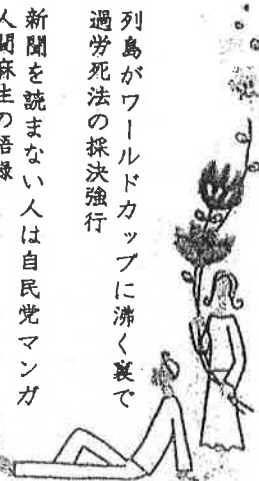 列島がワールドカップに沸く裏で
過労死法の採決強行
新聞を読まない人は自民党マンガ
人間麻生の語録